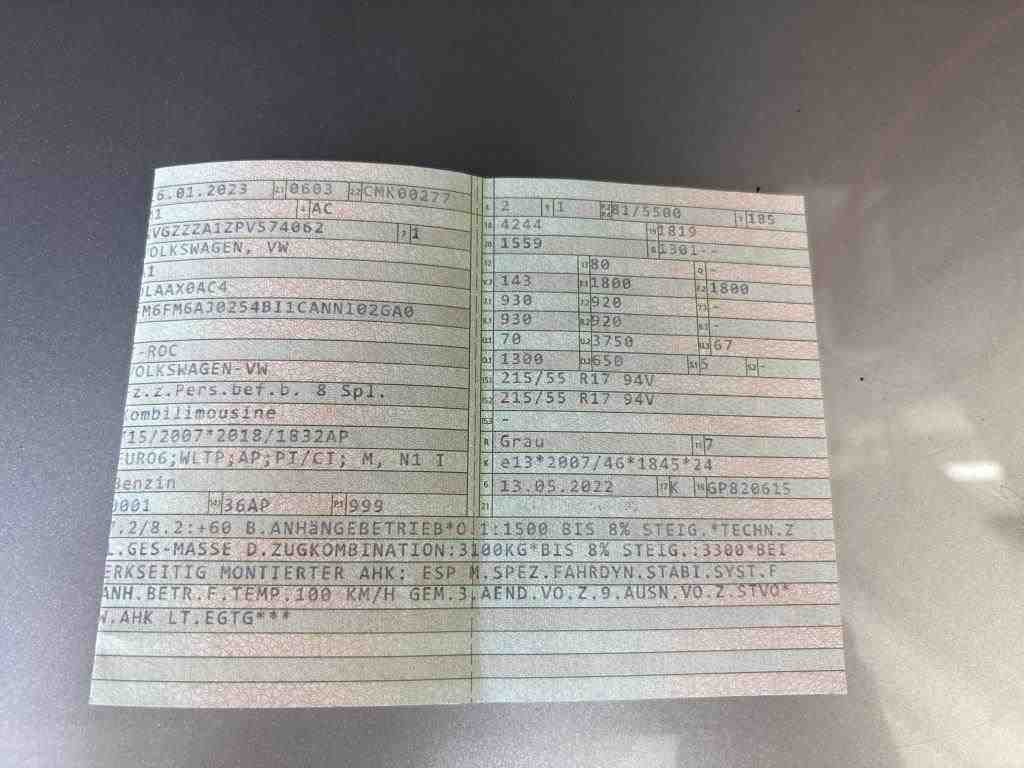 6.01.2023 2.1 0603 2.2 CMK00277
1 4 AC
VGZZZA1ZPV574062 3 1
OLKSWAGEN, VW
1
LAAX0AC4
M6FM6AJ0254BI1CANN102GA0
-ROC
OLKSWAGEN-VW
z.z.Pers.bef.b. 8 Spl.
ombilimousine
15/2007*2018/1832AP
EURO6;WLTP;AP;PI/CI; M, N1 I
Benzin
0001 14.1 36AP P.1 999
L 2 9 1 P.2 P.4 81/5500 T 185
18 4244 19 1819
20 1559 G 1301--
12 - 13 80 Q -
V.7 143 F.1 1800 F.2 1800
7.1 930 7.2 920 7.3 -
8.1 930 8.2 920 8.3 -
U.1 70 U.2 3750 U.3 67
O.1 1300 O.2 650 S.1 5 S.2 -
15.1 215/55 R17 94V
15.2 215/55 R17 94V
15.3 -
R Grau 11 7
K e13*2007/46*1845*24
6 13.05.2022 17 K 16 GP820615
21
7.2/8.2:+60 B.ANHäNGEBETRIEB*O.1:1500 BIS 8% STEIG.*TECHN.Z
L.GES-MASSE D.ZUGKOMBINATION:3100KG*BIS 8% STEIG.:3300*BEI
ERKSEITIG MONTIERTER AHK: ESP M.SPEZ.FAHRDYN.STABI.SYST.F
ANH.BETR.F.TEMP.100 KM/H GEM.3.AEND.VO.Z.9.AUSN.VO.Z.STVO*
W.AHK LT.EGTG***